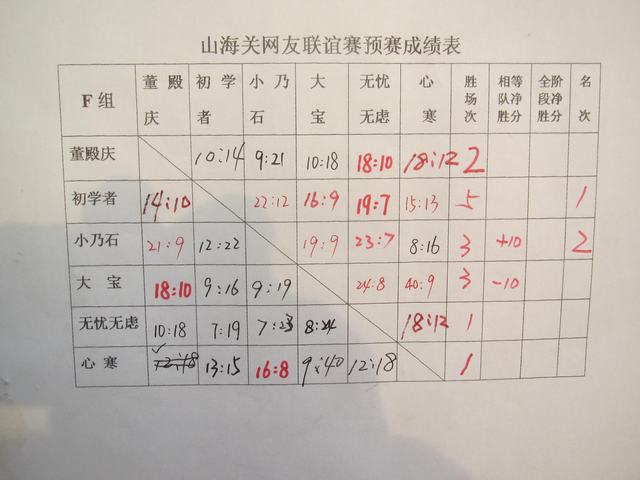 山海关网友联谊赛预赛成绩表
F组 董殿庆 初学者 小乃石 大宝 无忧无虑 心寒 胜场次 相等队净胜分 全阶段净胜分 名次
董殿庆 10:14 9:21 10:18 18:10 18:12 2
初学者 14:10 22:12 16:9 19:7 15:13 5 1
小乃石 21:9 12:22 19:9 23:7 8:16 3 +10 2
大宝 18:10 9:16 9:19 24:8 40:9 3 -10
无忧无虑 10:18 7:19 7:23 8:24 18:12 1
心寒 12:18 13:15 16:8 9:40 12:18 1